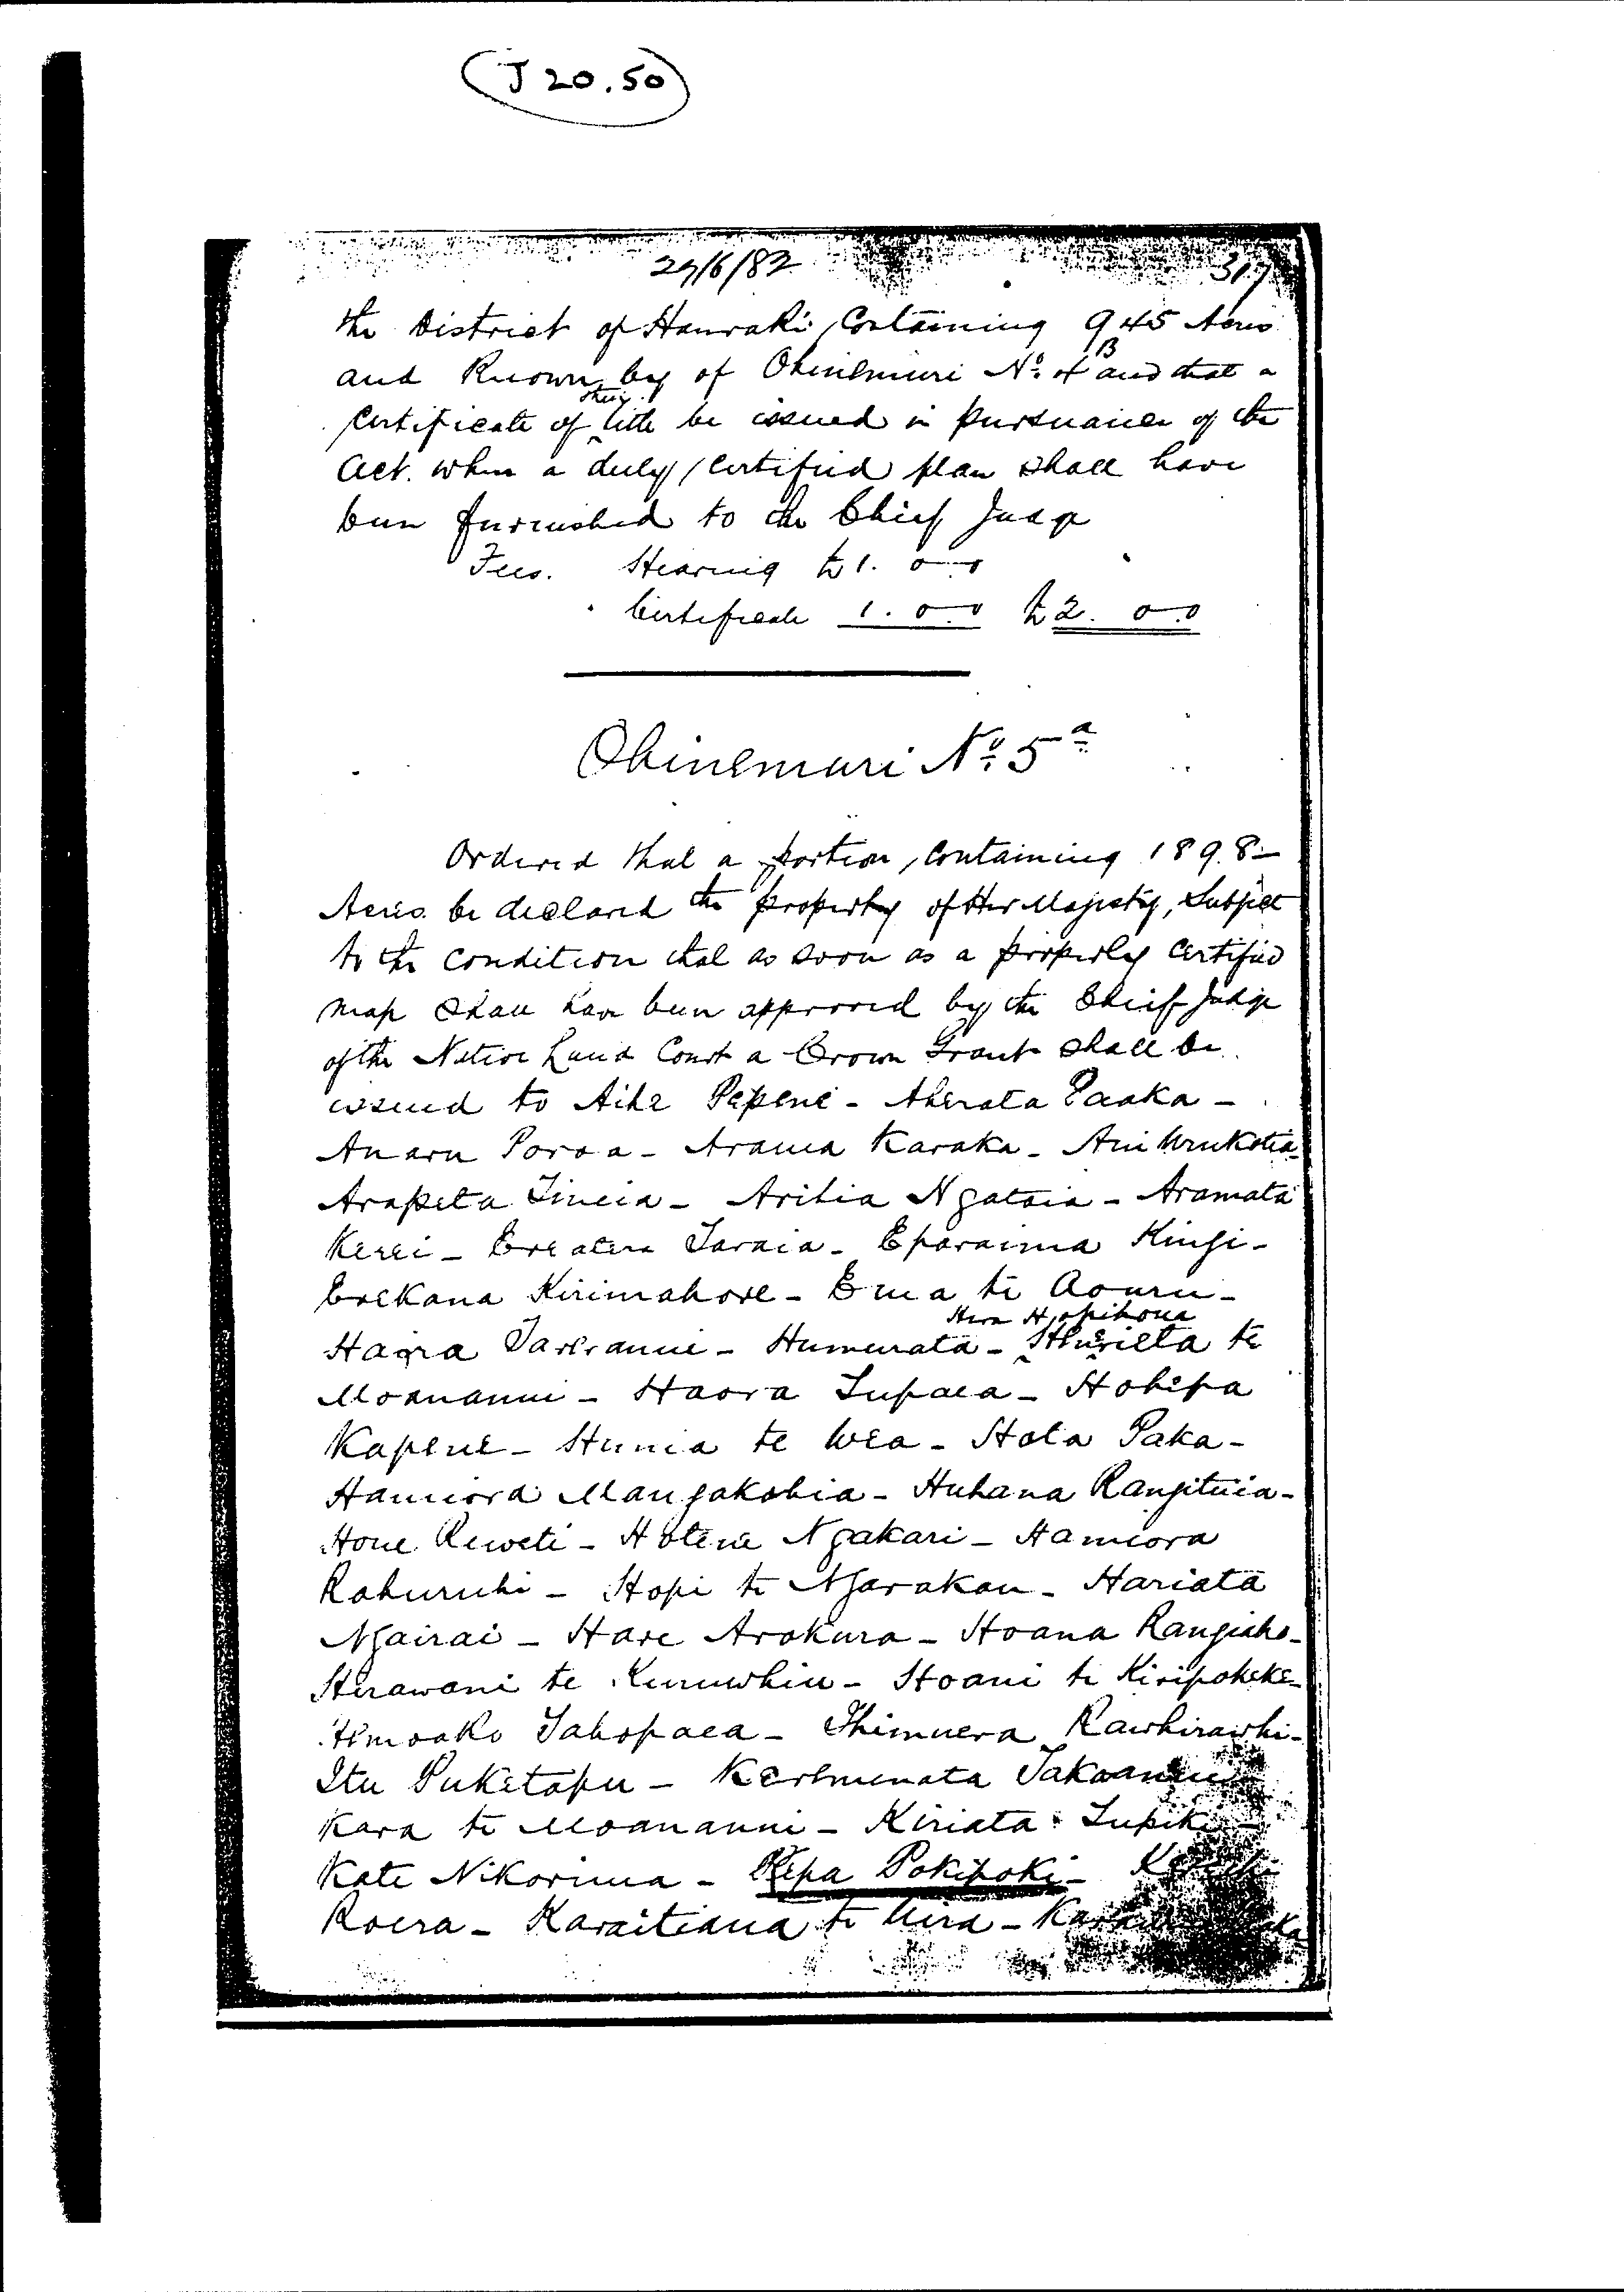 J 20.50
29/6/82
317
the District of Hauraki, Containing 945 Acres
and Known by of Ohinemuri No. 4 B and that a
Certificate of their title be issued in pursuance of the
Act. when a duly Certified plan shall have
been furnished to the Chief Judge
Fees. Hearing £1. 0 . 0
Certificate 1. 0 . 0 £2. 0 . 0
Ohinemuri No. 5 a
Ordered that a portion, Containing 1898
Acres be declared the property of Her Majesty, Subject
to the condition that as soon as a properly Certified
map shall have been approved by the Chief Judge
of the Native Land Court a Crown Grant shall be
issued to Aihe Pepene - Aherata Paaka -
Anaru Poroa - Arama Karaka -
Arapeta - Arihia Ngataia - Aramata
Kerei - Taraia - Eparaima Kingi -
Erekana Kirimahore - Ema te Aouru -
Hera Hopihona
Haora Tareranui - Humerata - te
Moananui - Haora Tupaea - Hohepa
Kapene - Hunia te Wea - Hota Paka -
Hamiora Mangakahia - Huhana Rangituia -
Hone Reweti - Hotene Ngakari - Hamiora
Rahuruhi - Hopi te Ngarakau - Hariata
Ngairai - Hare Arakura - Hoana Rangiaho -
Herawani te Kuruwhiu - Hoani te Kiripokeke -
Tahopaea - Ihimuera Rawhirawhi -
Itu Puketapu - Keremenata Takaanini
Kara te Moananui - Kiriata Tupiki -
Kate Nikorima - Kepa Pokipoki -
Roera - Karaitiana te Uira -